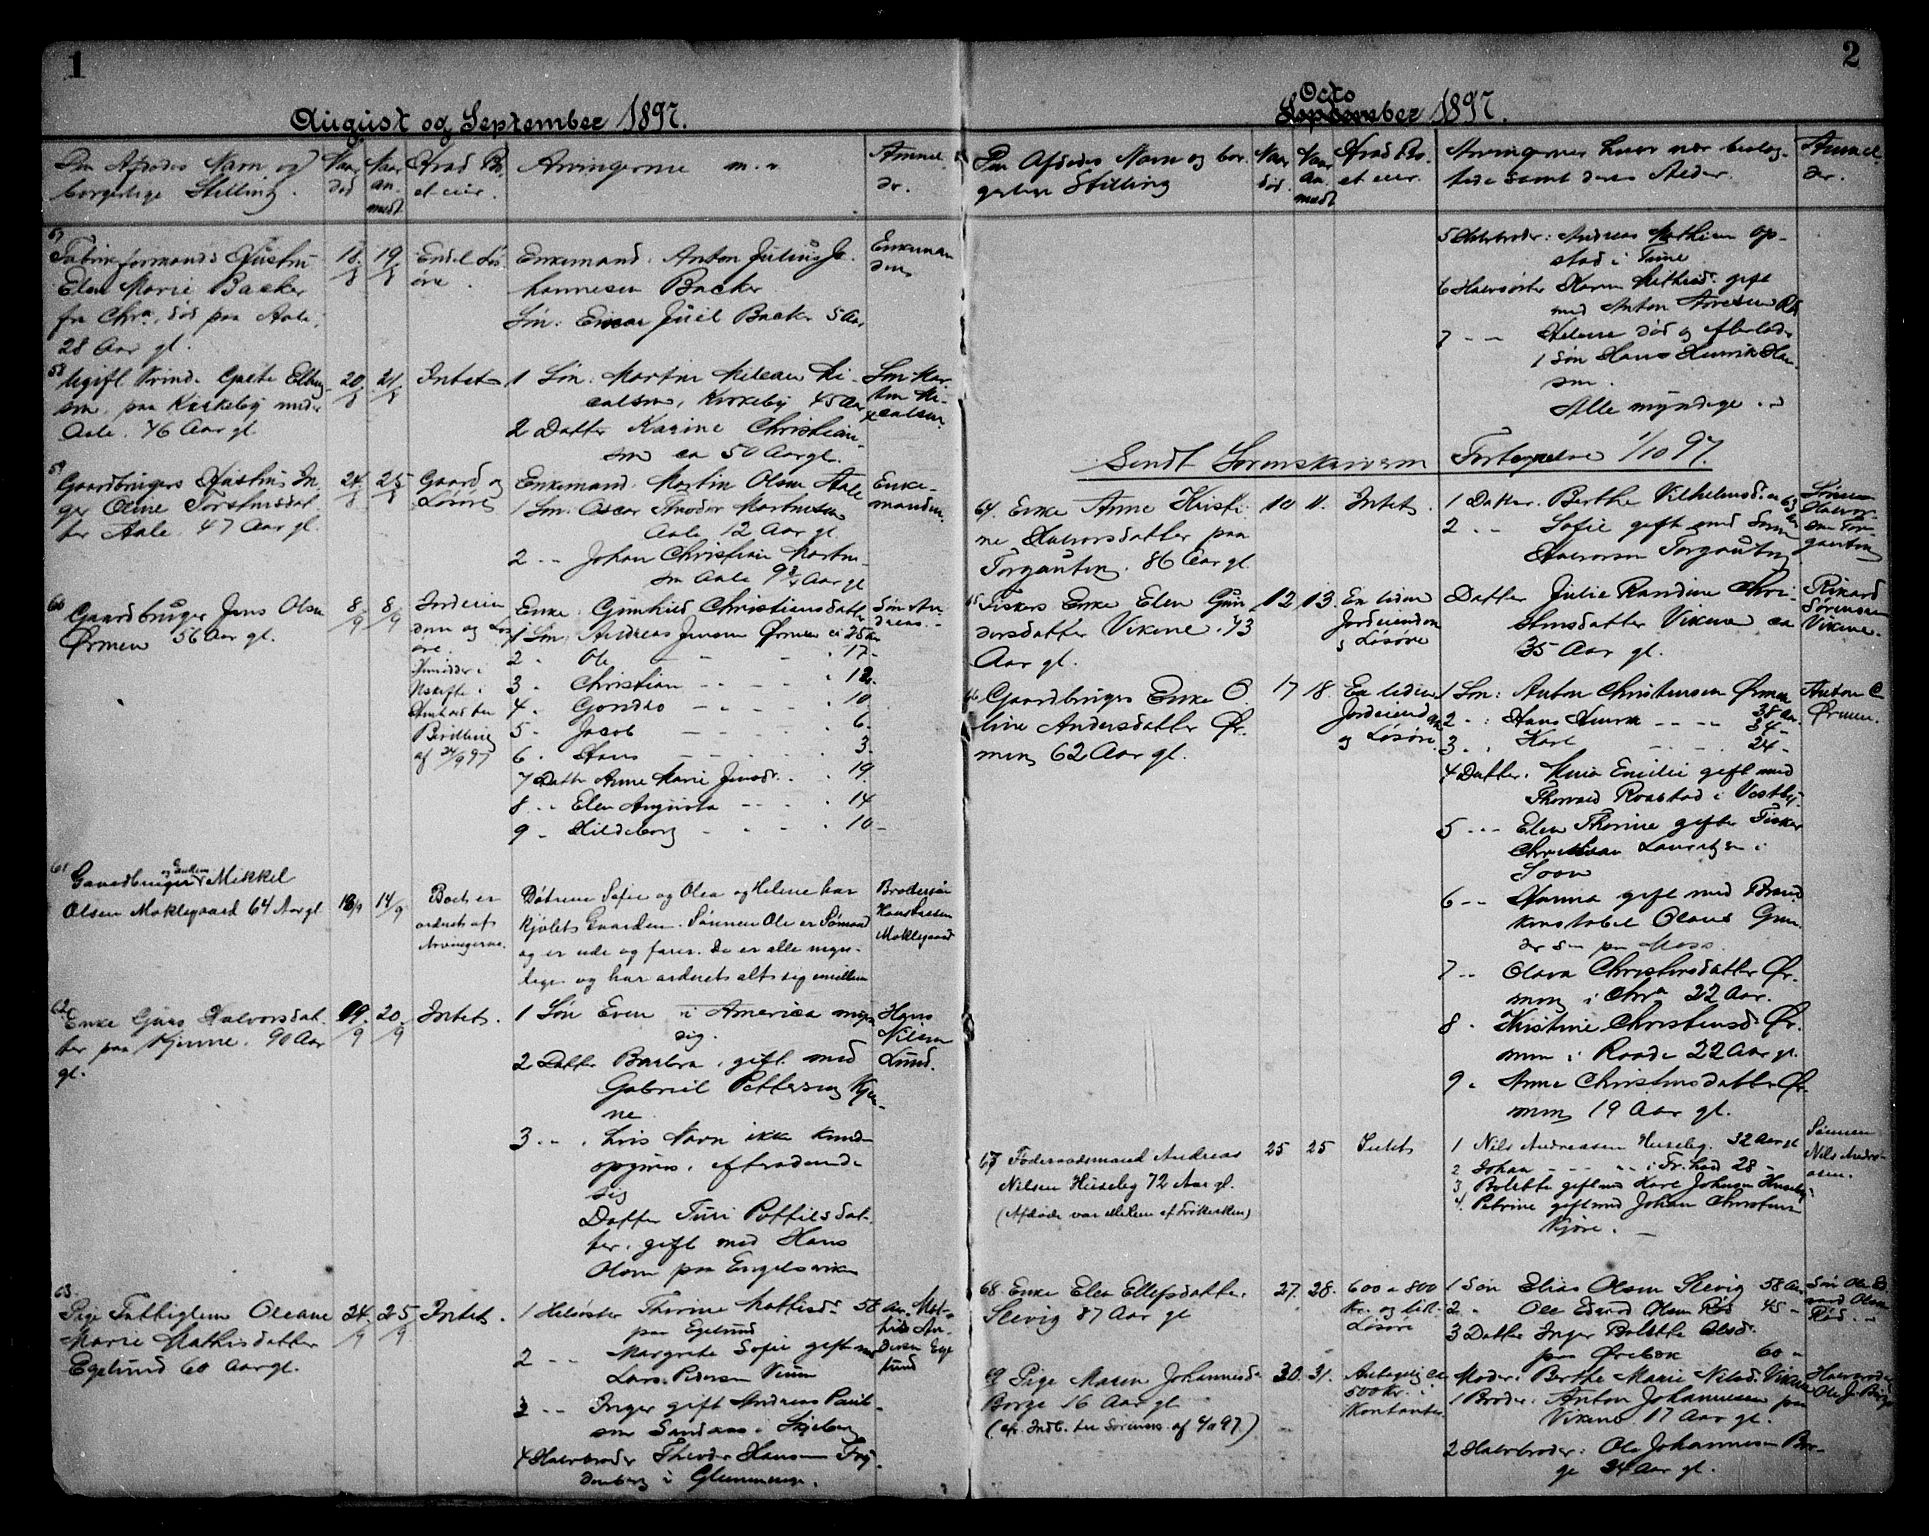 1
August og September 1897.
Den Afdødes Navn og
borgerlige Stilling.
Naar
død
Naar
an-
meldt
Hvad Bo-
et eier.
Arvingerne m. v.
Anmel-
der.
57
Fabrikformands Hustru
Elen Marie Backer
fra Chra., død paa Aale,
28 Aar gl.
18/8
19/8
Endel Løs-
øre.
Enkemand: Anton Julius Jo-
hannesen Backer
Søn: Einar Juel Backer 5 Aar
Enkeman-
den
58
Ugift Kvind. Grete Elling-
sen, paa Kirkeby med
Aale. 76 Aar gl.
20/8
21/8
Intet
1 Søn: Martin Mi-
calsen, Kirkeby 45 Aar
2 Datter Karine Christian-
sen ca 50 Aar gl.
Søn Mar-
tin Mi-
calsen
59
Gaardbrugers Hustru In-
ger Oline Torstensdat-
ter Aale. 47 Aar gl.
24/8
25/8
Gaard og
Løsøre
Enkemand: Martin Olsen Aale
1 Søn: Oscar Theodor Martinsen
Aale 12 Aar gl.
2 " " Johan Christian Martin-
sen Aale 9 3/4 Aar gl
Enke-
manden.
60
Gaardbruger Jens Olsen
Ørmen 56 Aar gl.
8/9
8/9
Jordeien-
dom og Løs-
øre.
Uskifte i
Henhold til
Bevilling
af 24/9 97
Enke: Gunhild Christiansdatter
1 Søn: Andreas Jensen Ørmen 25 Aar
2 - Ole - - 17 -
3 - Christian - - 12 -
4 - - - 10
5 - Jacob - - 6 -
6 - Hans - - 3 -
7 Datter Anne Marie Jensdr. - 19
8 - - Elen Augusta - - 14
9 - Hildeborg - - 10 -
Søn An-
dreas. -
61
Gaardbruger og Enkem. Mikkel
Olsen Moklegaard 64 Aar gl
13/9
14/9
Boet er
ordnet af
Arvingerne.
Døtrene Sofie og Olea og Helene har
kjøbt Gaarden. Sønnen Ole er Sømand
og er ude og farer. De er alle myn-
dige og har ordnet alt sig imellem
Brodersøn
Hans
Moklegaard
62
Enke Halvorsdat-
ter paa Kjenne. 90 Aar
gl.
19/9
20/9
Intet.
1 Søn Even i America myn-
dig.
2 Datter Barbra, gift med
Gabriel Pettersen Kjen-
ne
3 " " , hvis Navn ikke kunde
opgives, efterladende
sig
Datter Turi Pottilsdat-
ter, gift med Hans
Olsen paa Engelsviken
Hans
Nilsen
Lund.
63
Pige Fattiglem Oleane
Marie Mathisdatter
Egelund 60 Aar gl.
24/9
25/9
Intet.
1 Helsøster Thrine Mathisd. 58 Aar
paa Egelund
2 " " Margrete Sofie gift med
Lars Pedersen Vium
3 " " Inger gift Andreas Paul-
sen Sandaas i Skjeberg
4 Halvbroder Theodor Hansen Fry-
denberg i Glemminge.
Mat-
his An-
dersen Ege-
lund
2
Octo
September 1897.
Den Afdødes Navn og bor-
gerlige Stilling
Naar
død.
Naar
an-
meldt
Hvad Bo-
et eier.
Arvingernes hvor nær beslæg-
tede samt deres Alder.
Anmel-
der.
5 Halvbroder: Andreas Mathisen Op-
stad i Tune
6 Halvsøster Karen Mathisd. gift
med Anton Arvesen
7 - - Helene død og efterlod
1 Søn Hans Henrik Han-
sen.
Alle myndige. -
Sendt Sorenskriveren Fortegnelse 1/10 97.
64. Enke Anne Kristi-
ne Halvorsdatter paa
Torgauten. 86 Aar gl.
10
11.
Intet.
1 Datter. Berthe Vilhelmsd. 63 Aar
2 " " Sofie gift med Søren
Halvorsen Torgauten
Søren
Halvor-
sen Tor-
gauten
65 Fiskers Enke Elen Gun-
dersdatter Vikene. 73
Aar gl.
12
13.
En liden
Jordeiendom
og Løsøre
Datter Julie Randine Chri-
stensdatter Vikene ca
35 Aar gl.
Rikard
Sørensen
Vikene.
66 Gaardbrugers Enke O-
line Andersdatter Ør-
men 62 Aar gl.
17
18
En liden
Jordeiendom
og Løsøre.
1 Søn: Anton Christensen Ørmen 38 Aar
2 - : Hans Henrik - - - - 34 -
3. , Karl - - 24 -
4 Datter. Emilie gift med
Thorvald Roastad i Vestby.
5 - - Elen Thorine gift Fisker
Christian Lauritzen i
Soon
6 - - Hanna gift med Brand-
konstabel Olaus Gun-
dersen paa Moss.
7 - - Olava Christensdatter Ør-
men i Chra 22 Aar.
8 - Kristine Christensd. Ør-
men i Raade 22 Aar gl.
9 - Anna Christensdatter Ør-
men 19 Aar gl.
Anton C.
Ørmen.
67 Føderaadsmand Andreas
Nilsen Huseby 72 Aar gl.
25
25
Intet
1 Nils Andreasen Huseby. 32 Aar gl
2 Johan - - - - i Fr.stad 28 -
3 Bolette gift med Karl Johnsen Huseby
4. Petrine gift med Johan Christensen
Kjøre. -
Sønnen
Nils Andre-
asen.
68 Enke Elen Ellefsdatter
Slevig 87 Aar gl
27.
28.
600 a 800
Kr. og lidt
Løsøre
1 Søn Elias Olsen Slevig 58 Aar
2 " Ole Edvard Olsen Rød 45 "
3 Datter Inger Bolette Olsd.
paa Ørebæk 60 "
Søn Ole Ed-
vard Olsen
Rød. -
69 Pige Maren Johannesd.
Borge 16 Aar gl
30.
31.
Antagelig ca
500 Kr. i
Kontanter
Moder: Berthe Marie Nilsd. Vikene
1 Broder: Anton Johannesen paa
Vikene 17 Aar gl.
2 Halvbroder: Ole Johannesen Bor-
ge 24 Aar gl.
Halvbroder
Ole J. Borge